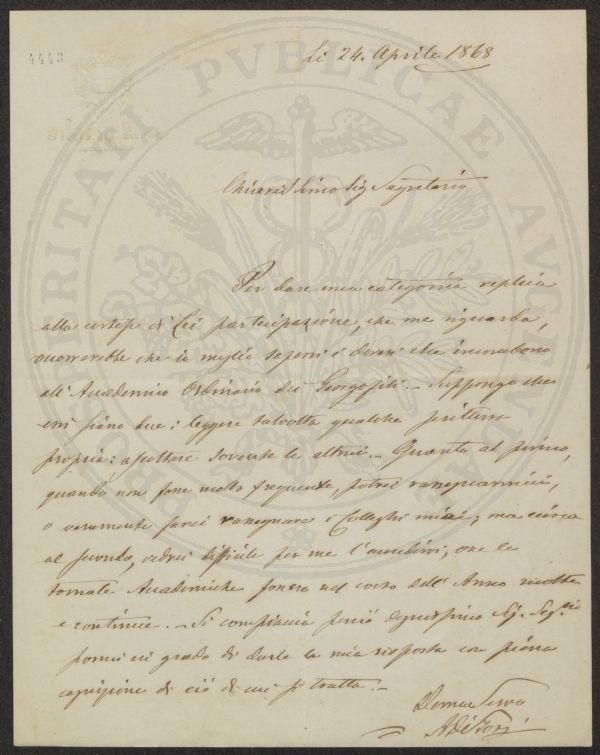 4443
Li 24. Aprile 1868
PROSPERITATI PVBLICAE AVGENDAE
Chiarissimo Sig Segretario
Per dare una categorica replica
alla cortese di Lei partecipazione, che me riguarda,
occorrerebbe che io meglio sapessi i doveri che incombono
all'Accademico Ordinario dei Georgofili. - Suppongo che
essi siano due: leggere talvolta qualche scrittura
propria: ascoltare sovente le altrui. - Quanto al primo,
quando non fosse molto frequente, potrei rassegnarmici,
o veramente farci rassegnare i Colleghi miei; ma circa
al secondo, vedrei difficile per me l'assistervi, ove le
tornate Accademiche fossero nel corso dell'Anno molte
e continue. - Si compiaccia perciò degnissimo Sig. Seg.rio
pormi in grado di darle la mia risposta con piena
cognizione di ciò di cui si tratta. -
Servo